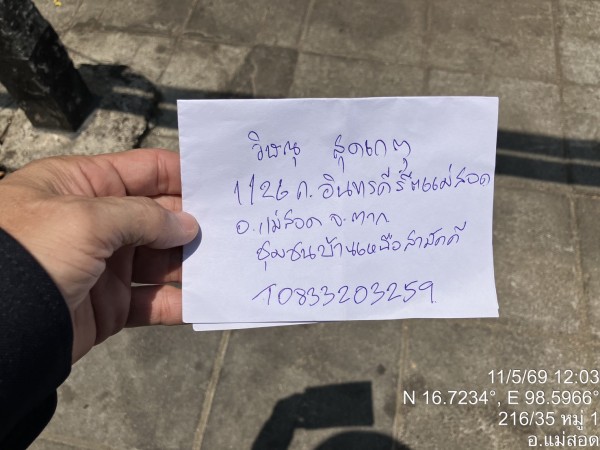 วิษณุ สุดเกตุ
1/26 ถ. อินทรคีรี ต.แม่สอด
อ.แม่สอด จ.ตาก
ชุมชนบ้านเหนือสามัคคี
T0833203259
11/5/69 12:03
N 16.7234°, E 98.5966°
216/35 หมู่ 1
อ.แม่สอด